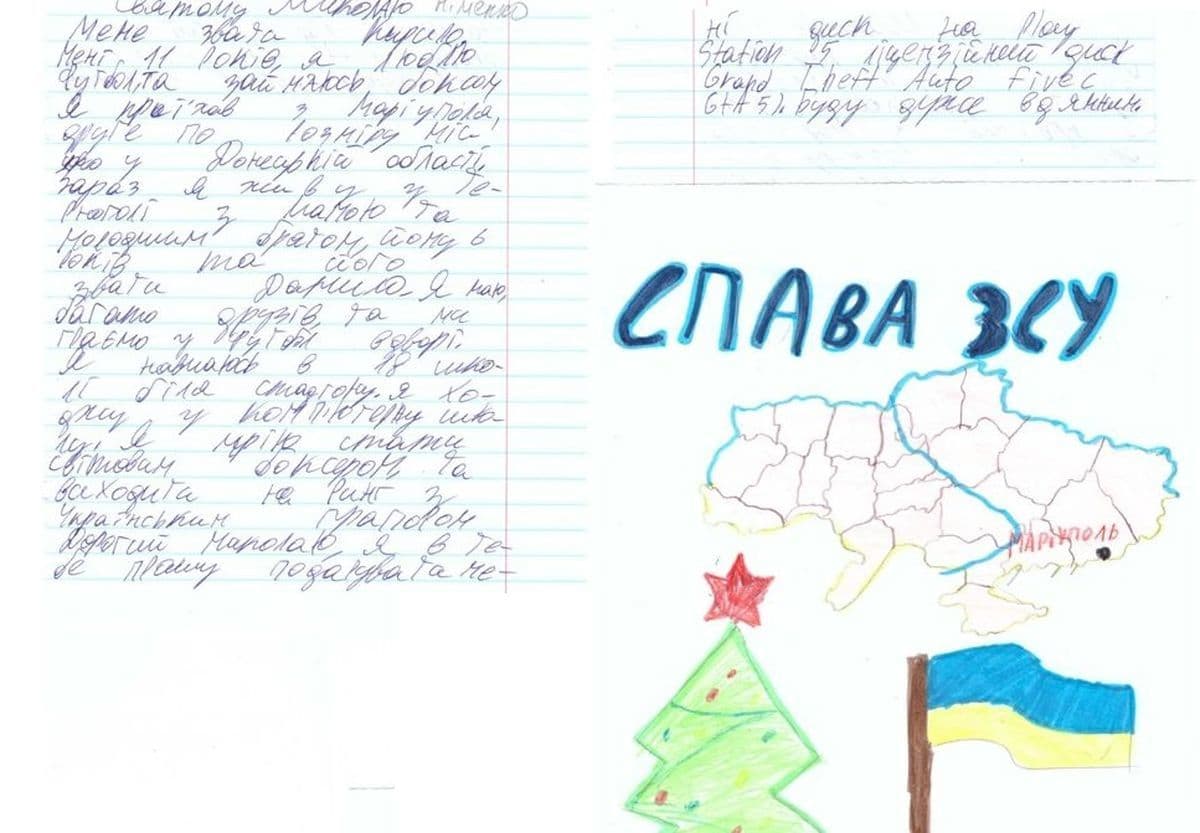 Святому Миколаю Німенко
Мене звати Кирило,
мені 11 років, я люблю
футбол, та займаюсь боксом
Я приїхав з Маріуполя,
друге по розміру міс-
у Донецькій області,
зараз я живу у Те-
рнополі з мамою та
молодшим братом, йому 6
років та його
звати Данило. Я маю
багато друзів та ми
граємо у футбол вдворі.
Я навчаюсь в 18 шко-
лі біля стадіону. я хо-
джу у комп'ютерну шко-
лу. Я мрію стати
світовим боксером та
виходити на ринг з
Українським прапором
Дорогий Миколаю, я в те-
бе прошу подарувати ме-
ні диск на Play
Station 5 ліцензійний диск
Grand Theft Auto Five(
GTA 5). Буду дуже вдячним.
СЛАВА ЗСУ
МАРІУПОЛЬ